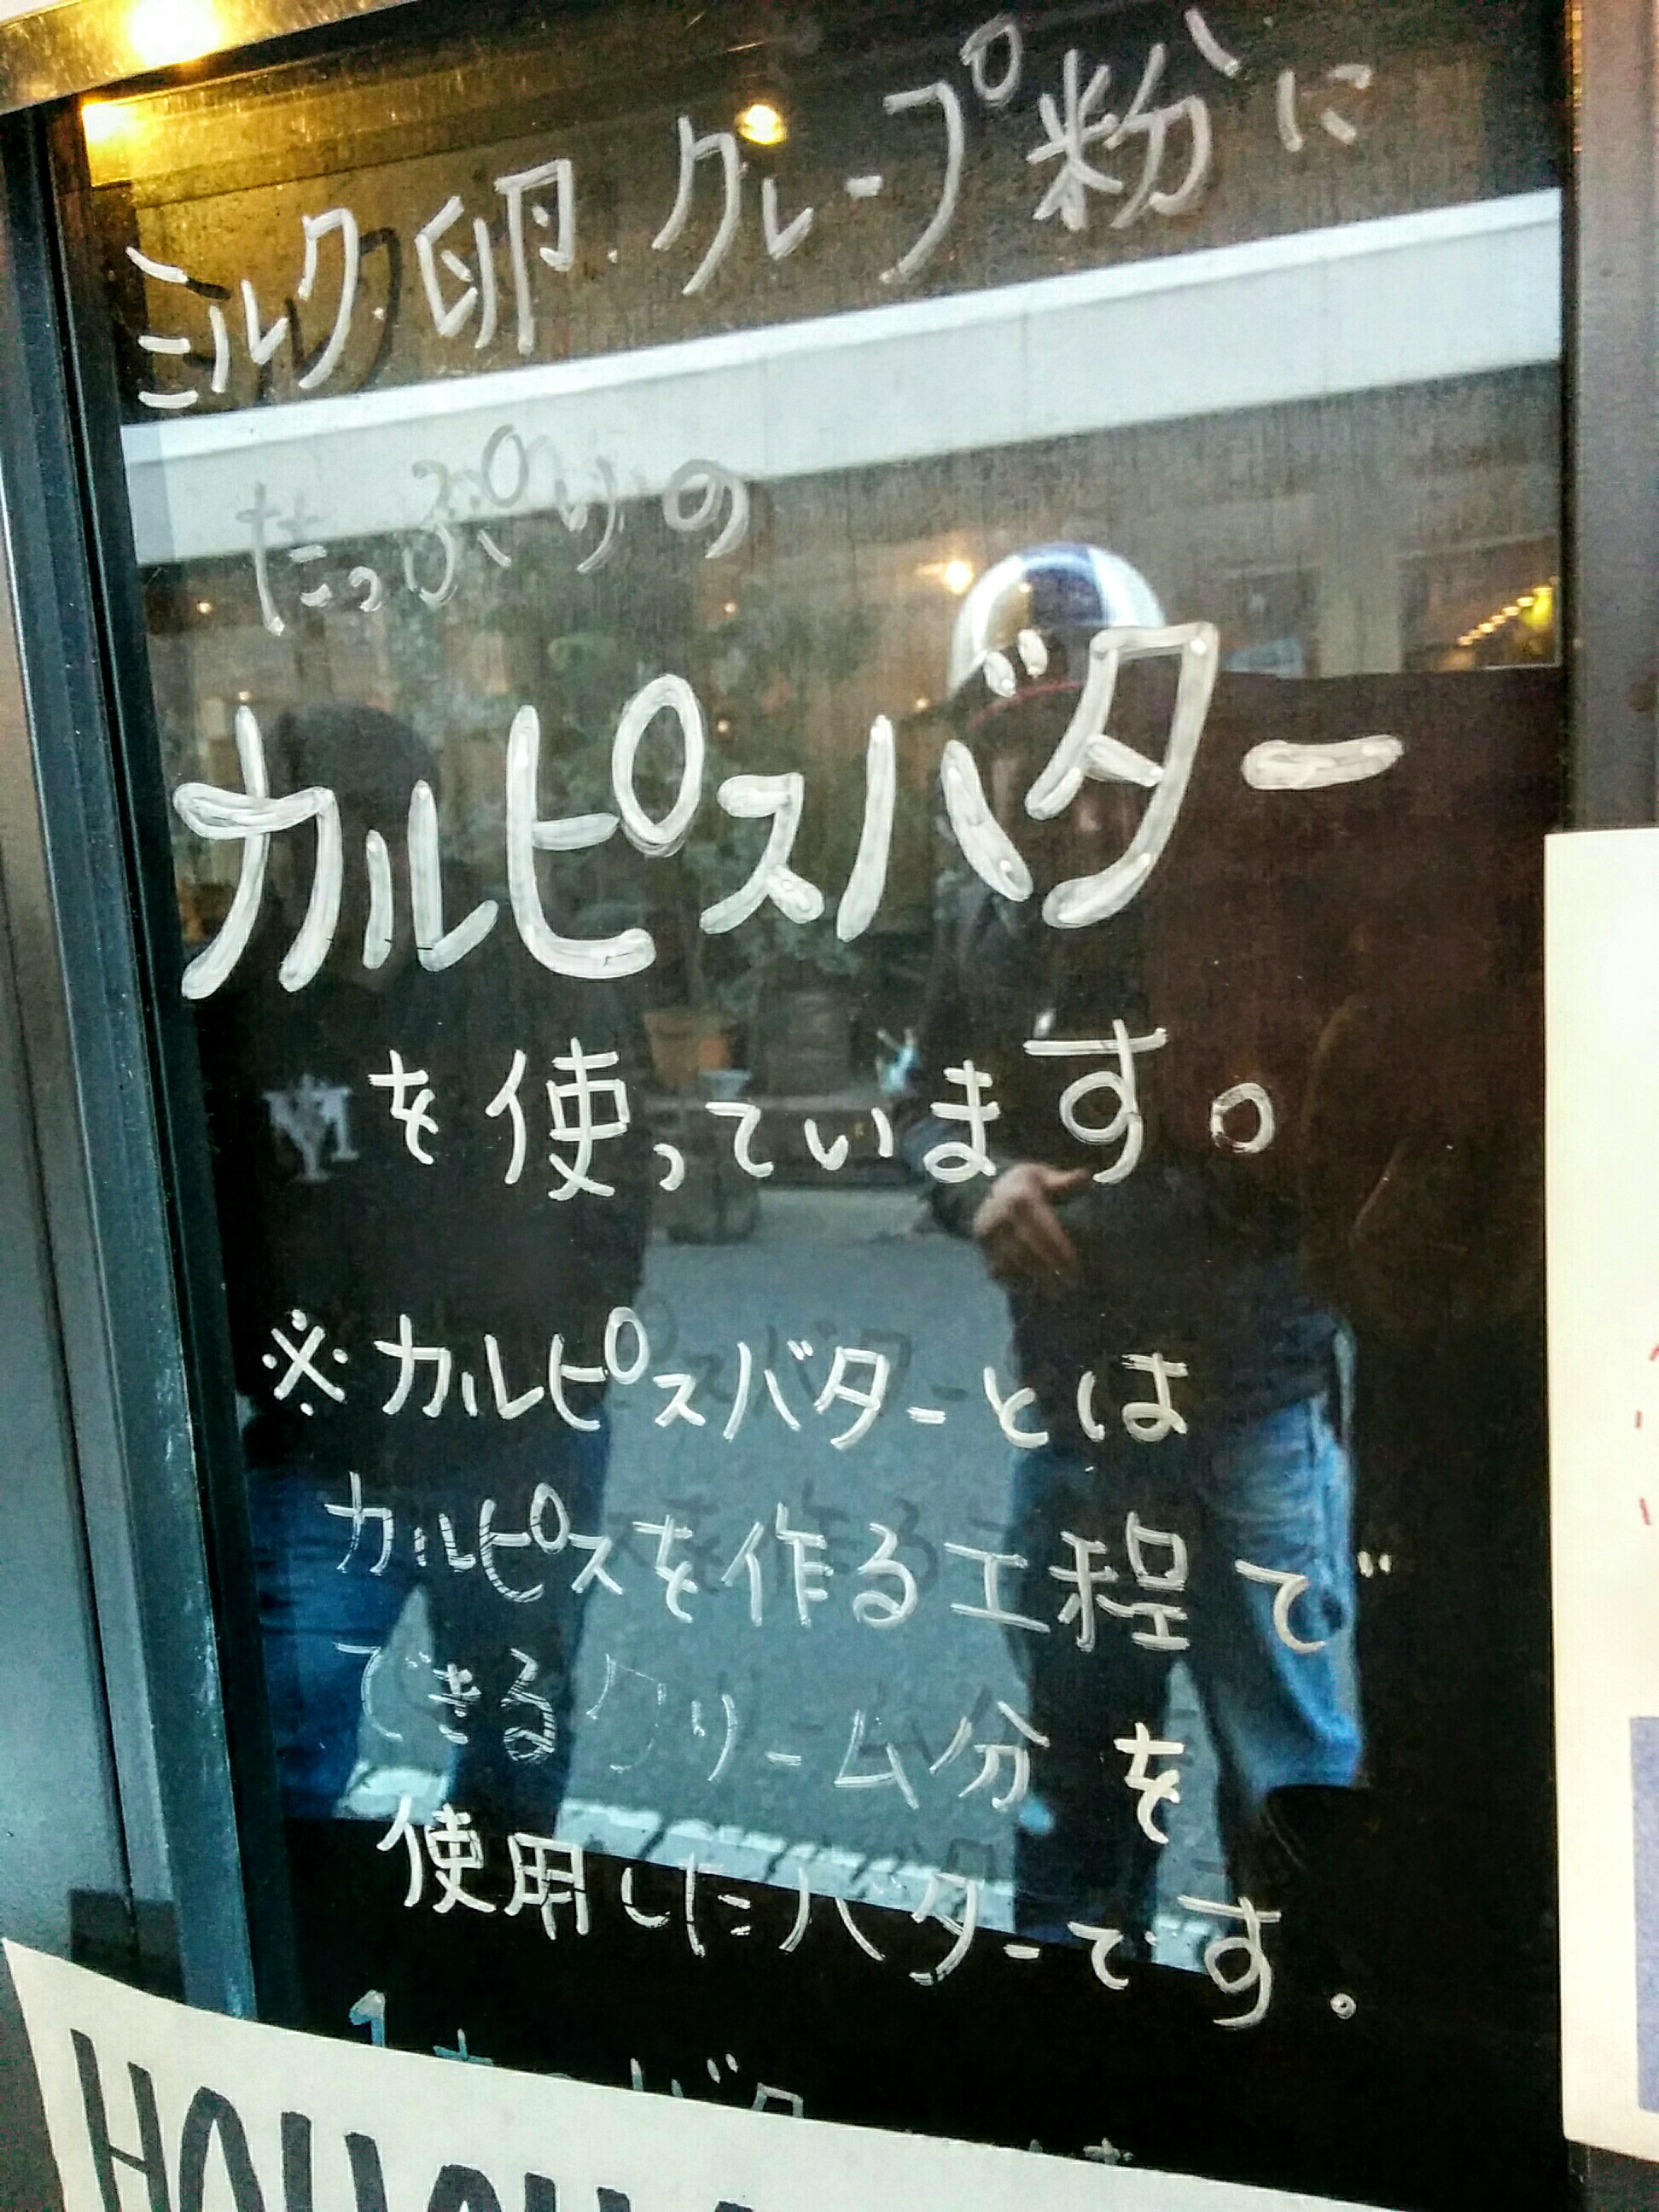 ミルク・卵・クレープ粉に
たっぷりの
カルピスバター
を使っています。
※カルピスバターとは
カルピスを作る工程で
できるクリーム分を
使用したバターです。